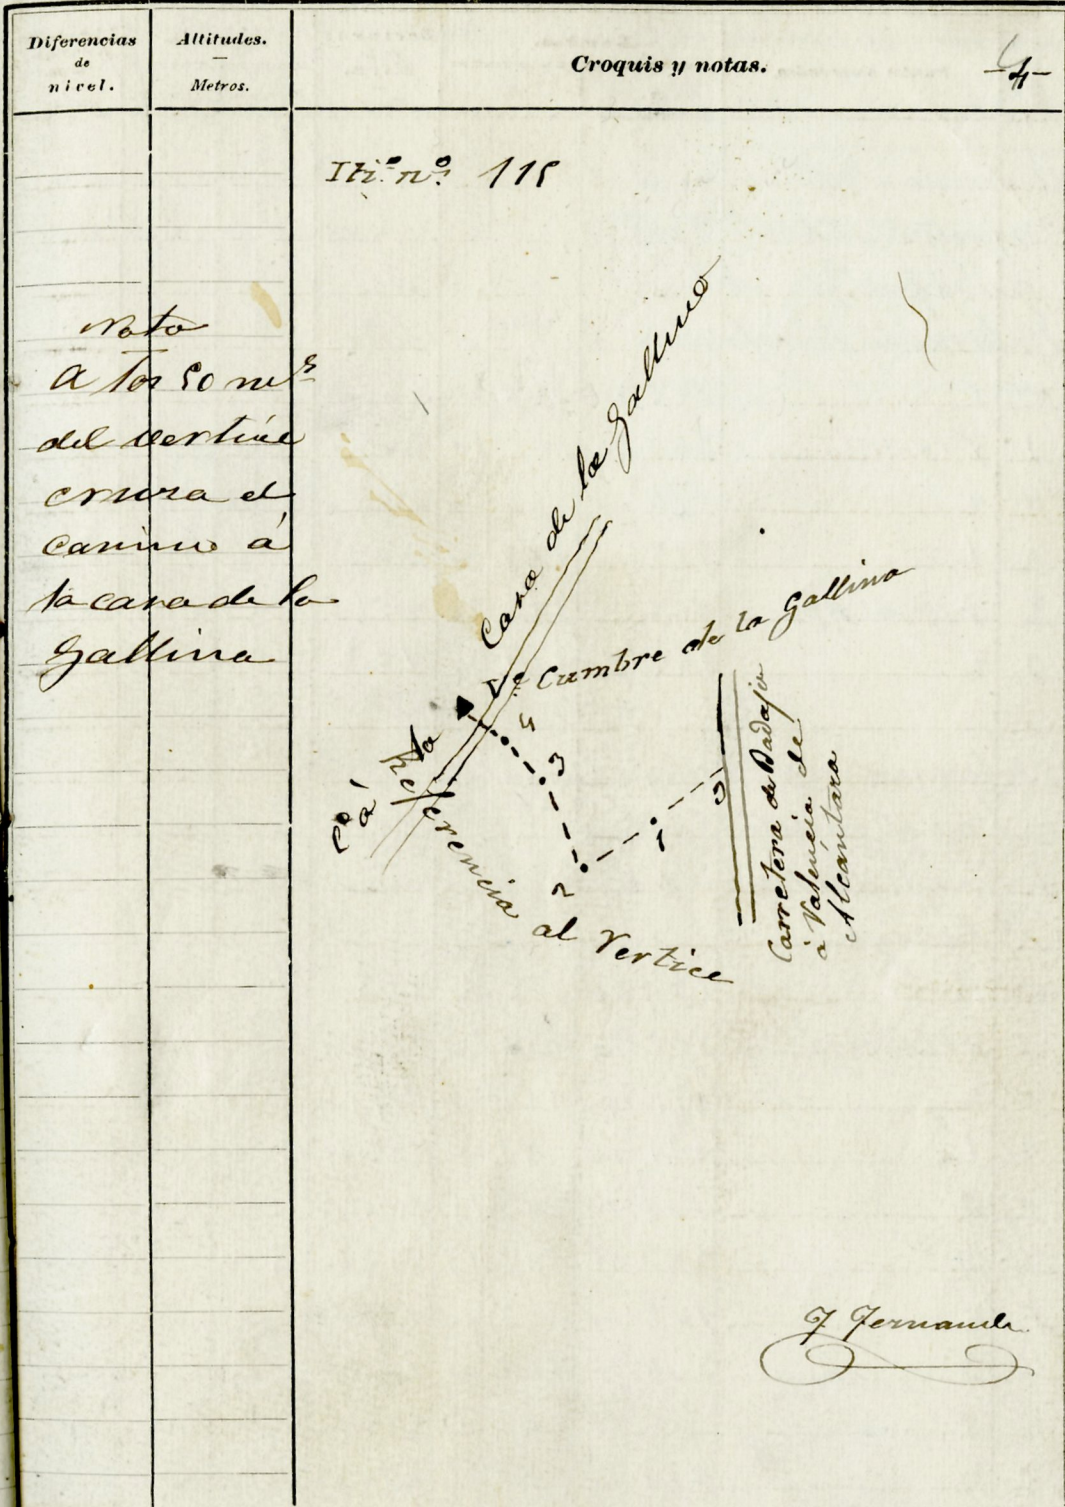 Diferencias
de
nivel.
Altitudes.
Metros.
Croquis y notas.
-4-
Iti.º n.º 115
Nota
A los 50 mes
del vertice
cruza el
camino á
la casa de la
Gallina
Cº á la Casa de la Gallina
Vº Cumbre de la Gallina
4
3
2
1
0
Referencia al Vertice
Carretera de Badajo
á Valencia de
Alcántara
J Fernande